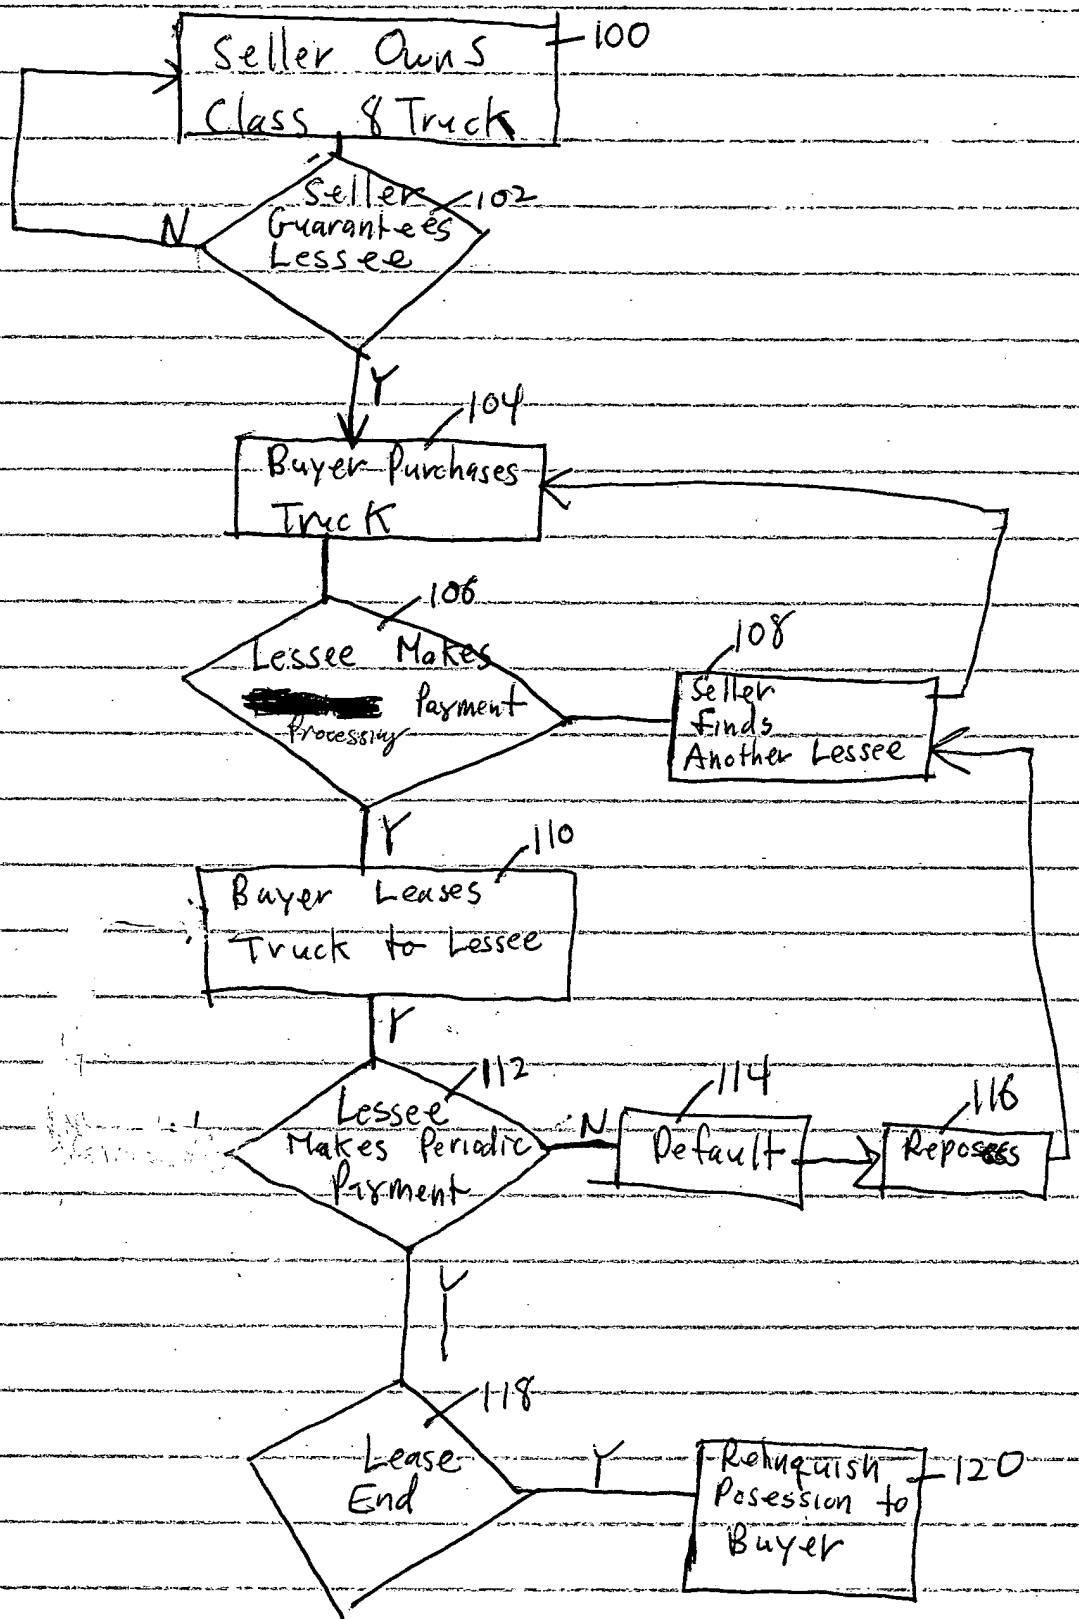 Seller Owns
Class 8 Truck
100
Seller
Guarantees
Lessee
102
N
Y
104
Buyer Purchases
Truck
106
Lessee Makes
Payment
Processing
108
Seller
Finds
Another Lessee
Y
110
Buyer Leases
Truck to Lessee
Y
112
Lessee
Makes Periodic
Payment
N
114
Default
116
Reposess
Y
118
Lease
End
Y
Relinquish
Posession to
Buyer
120